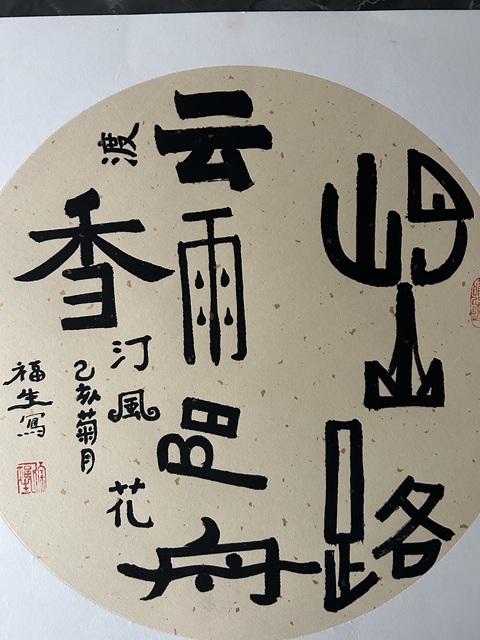 山路
云雨阳舟
波汀風花
香
己亥菊月
福生寫